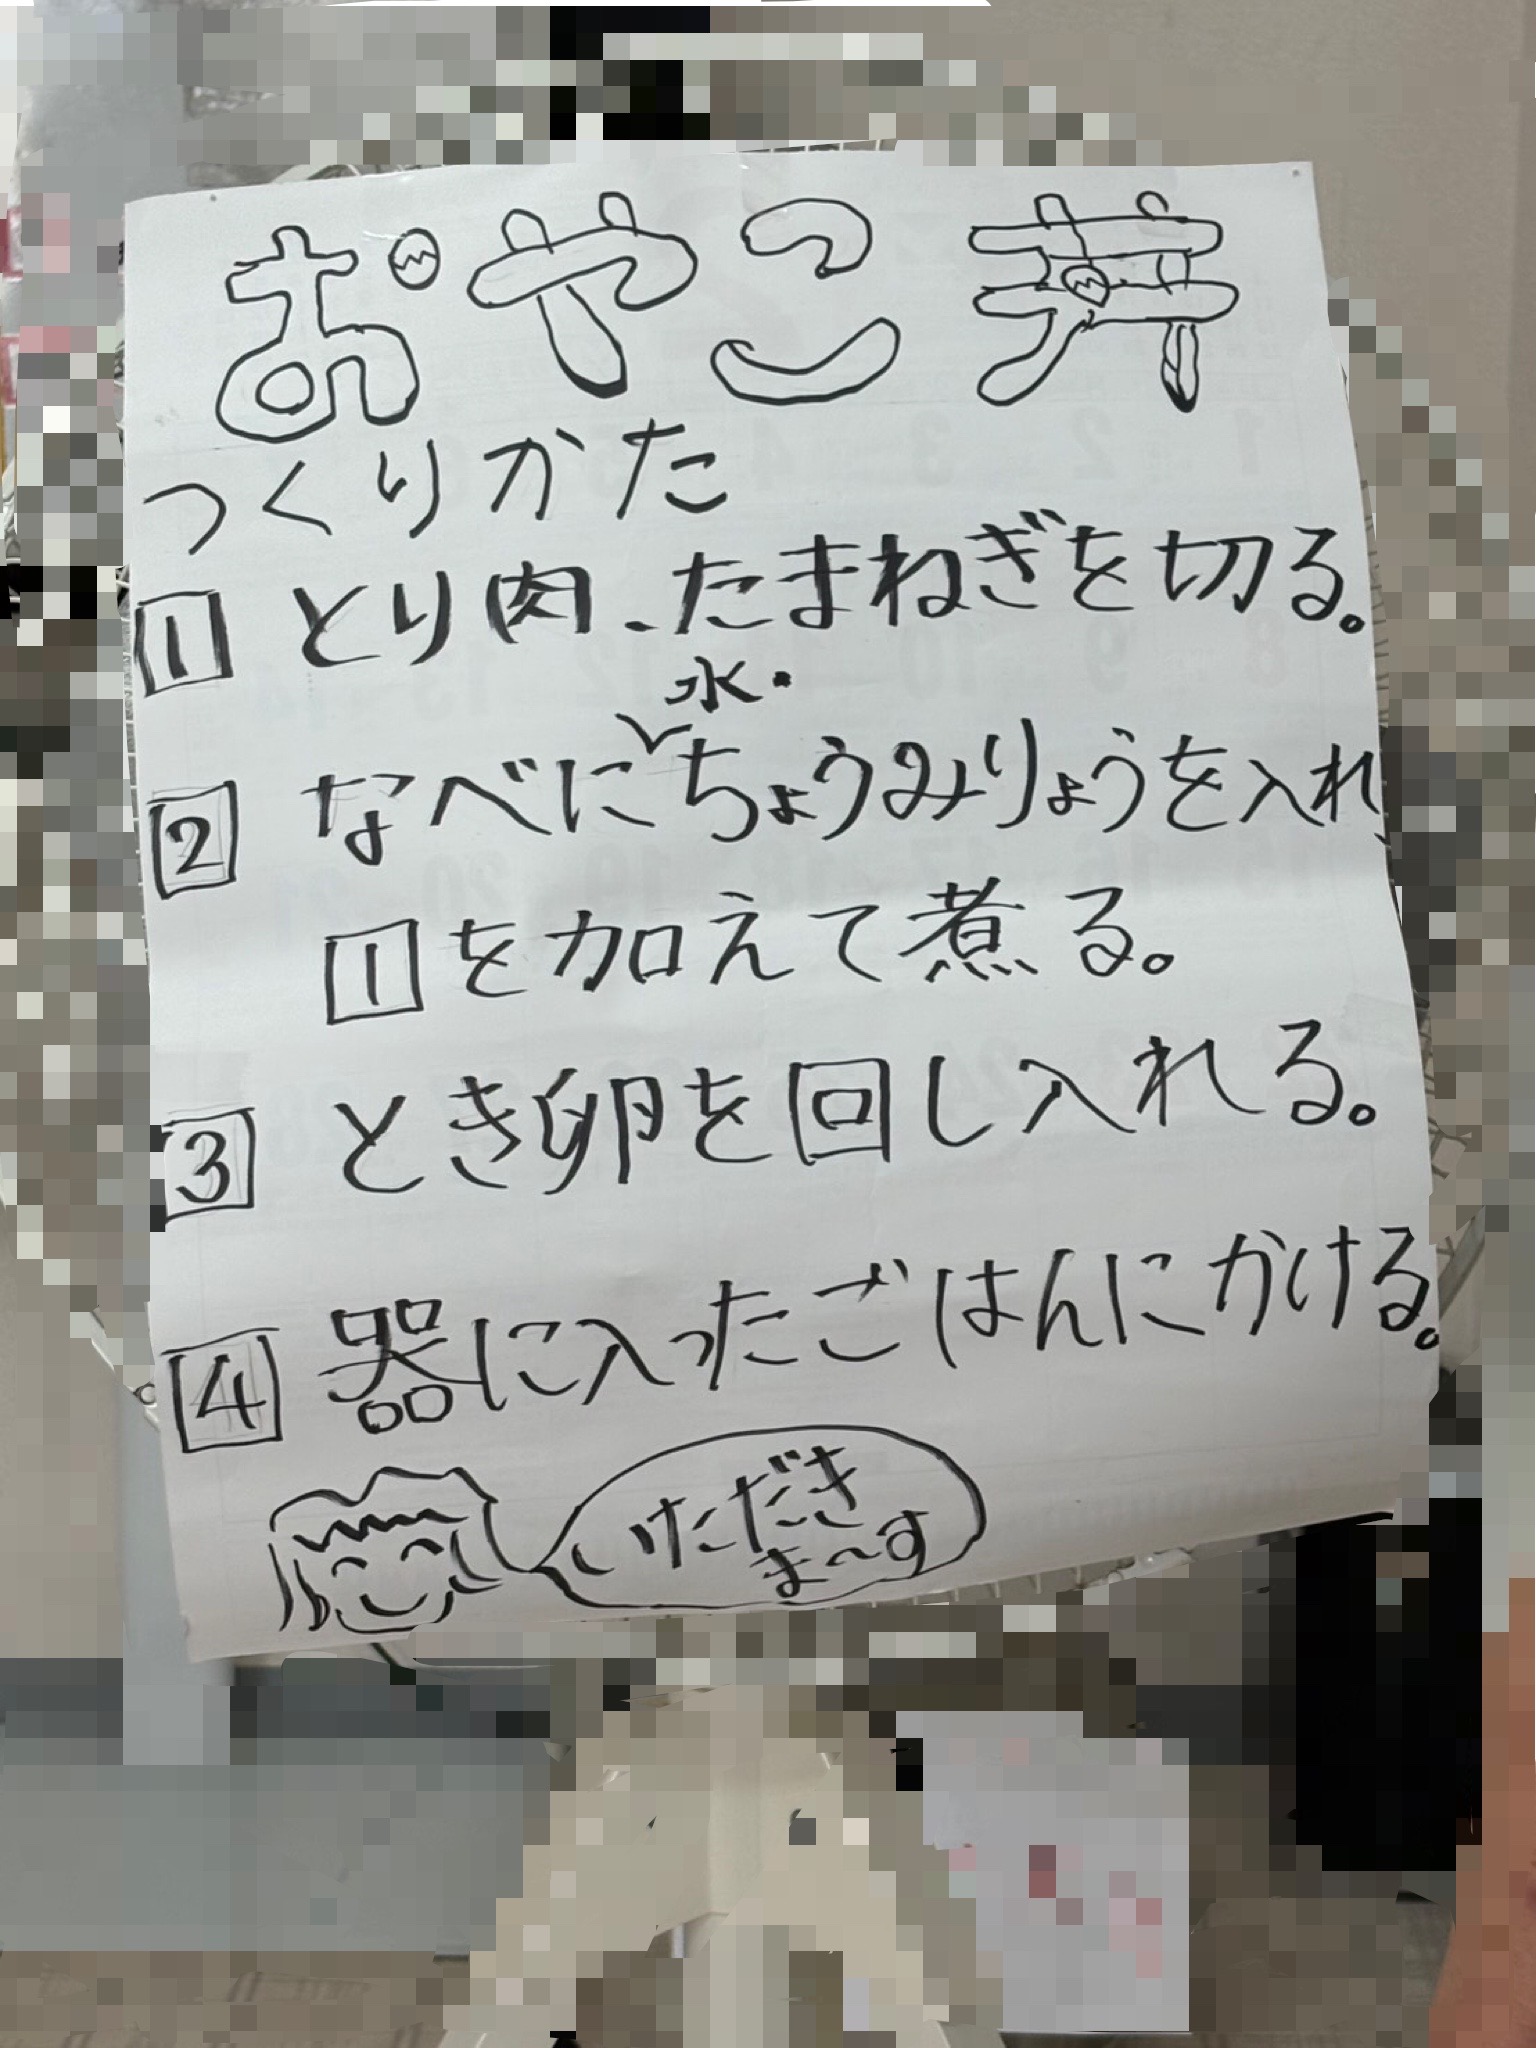 おやこ丼
つくりかた
1 とり肉、たまねぎを切る。
2 なべに水・ちょうみりょうを入れ、
1を加えて煮る。
3 とき卵を回し入れる。
4 器に入ったごはんにかける。
いただき
ま〜す